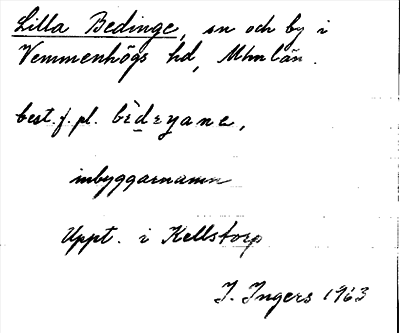 Lilla Bedinge, sn och by i
Vemmenhögs hd, Mhm län.
best. f. pl. bèdeɣane,
inbyggarnamn
Uppt. i Kellstorp
I. Ingers 1963